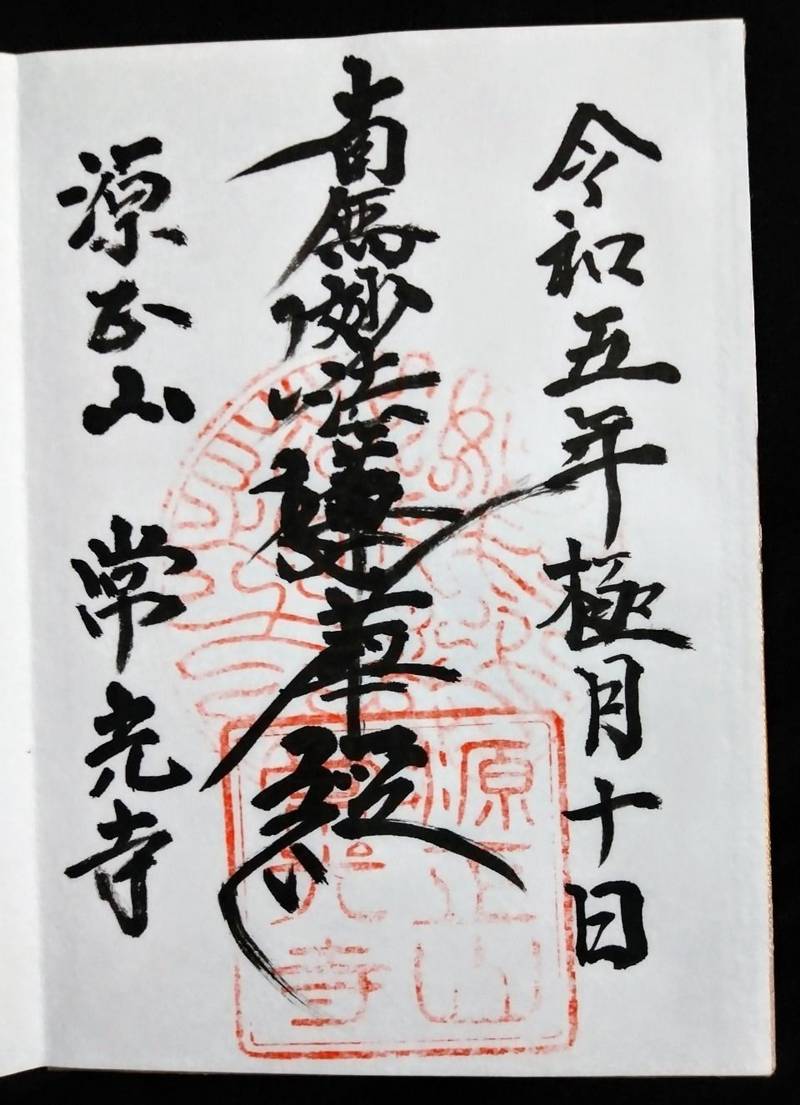 令和五年極月十日
南無妙法蓮華経
源正山 常光寺
源正山
常光寺